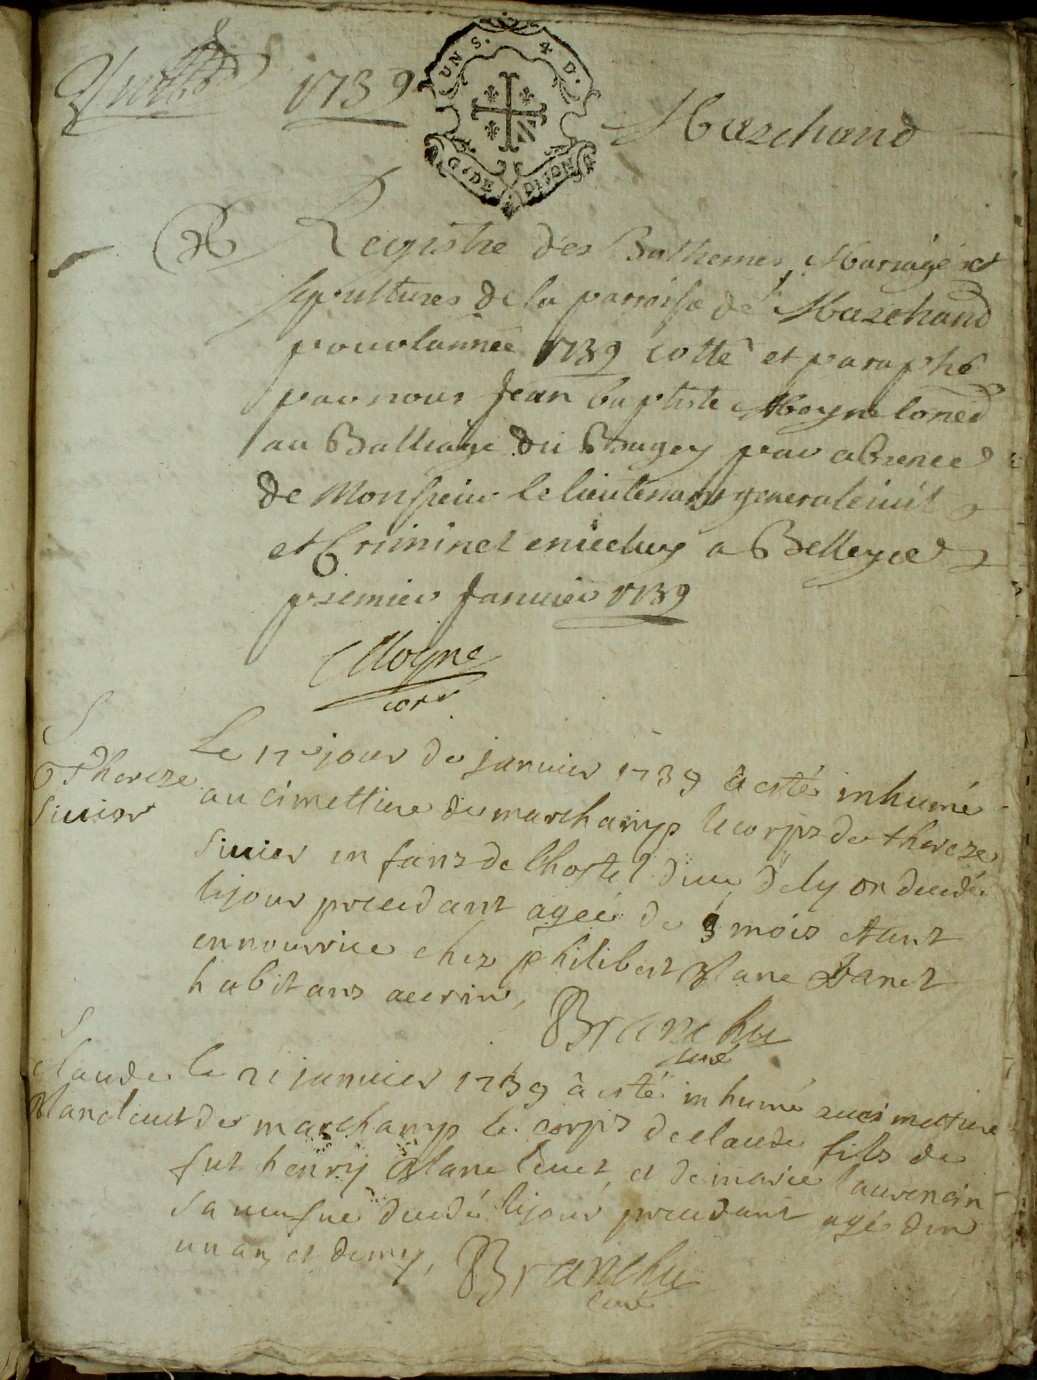 1739
UN S. 4 D.
G. DE DIJON
Marchand
Registre des Bathemes, Mariage et
sepultures de la parroisse de Marchand
pour lannee 1739 cotté et paraphé
par nous Jean baptiste Moyne
au Balliage du Bugey par absence
de Monsieur le lieutenant general civil
et Criminel a Belley ce
premier Janvier 1739
Moyne
Le 17e jour de janvier 1739 a esté inhumé
Thereze
Sivier
au cimettiere de marchamp le corps de thereze
Sivier enfans de lhostel dieu de lyon decedé
le jour precedant agée de 3 mois etant
en nourrice chez philibert Janet
habitans
Branchu
curé
Claude
le 21 janvier 1739 a esté inhumé au cimettiere
de marchamp le corps de claude fils de
fut henry et de marie laurencin
sa veufve decedé le jour precedant agé d'un
un an et demy,
Branchu
curé